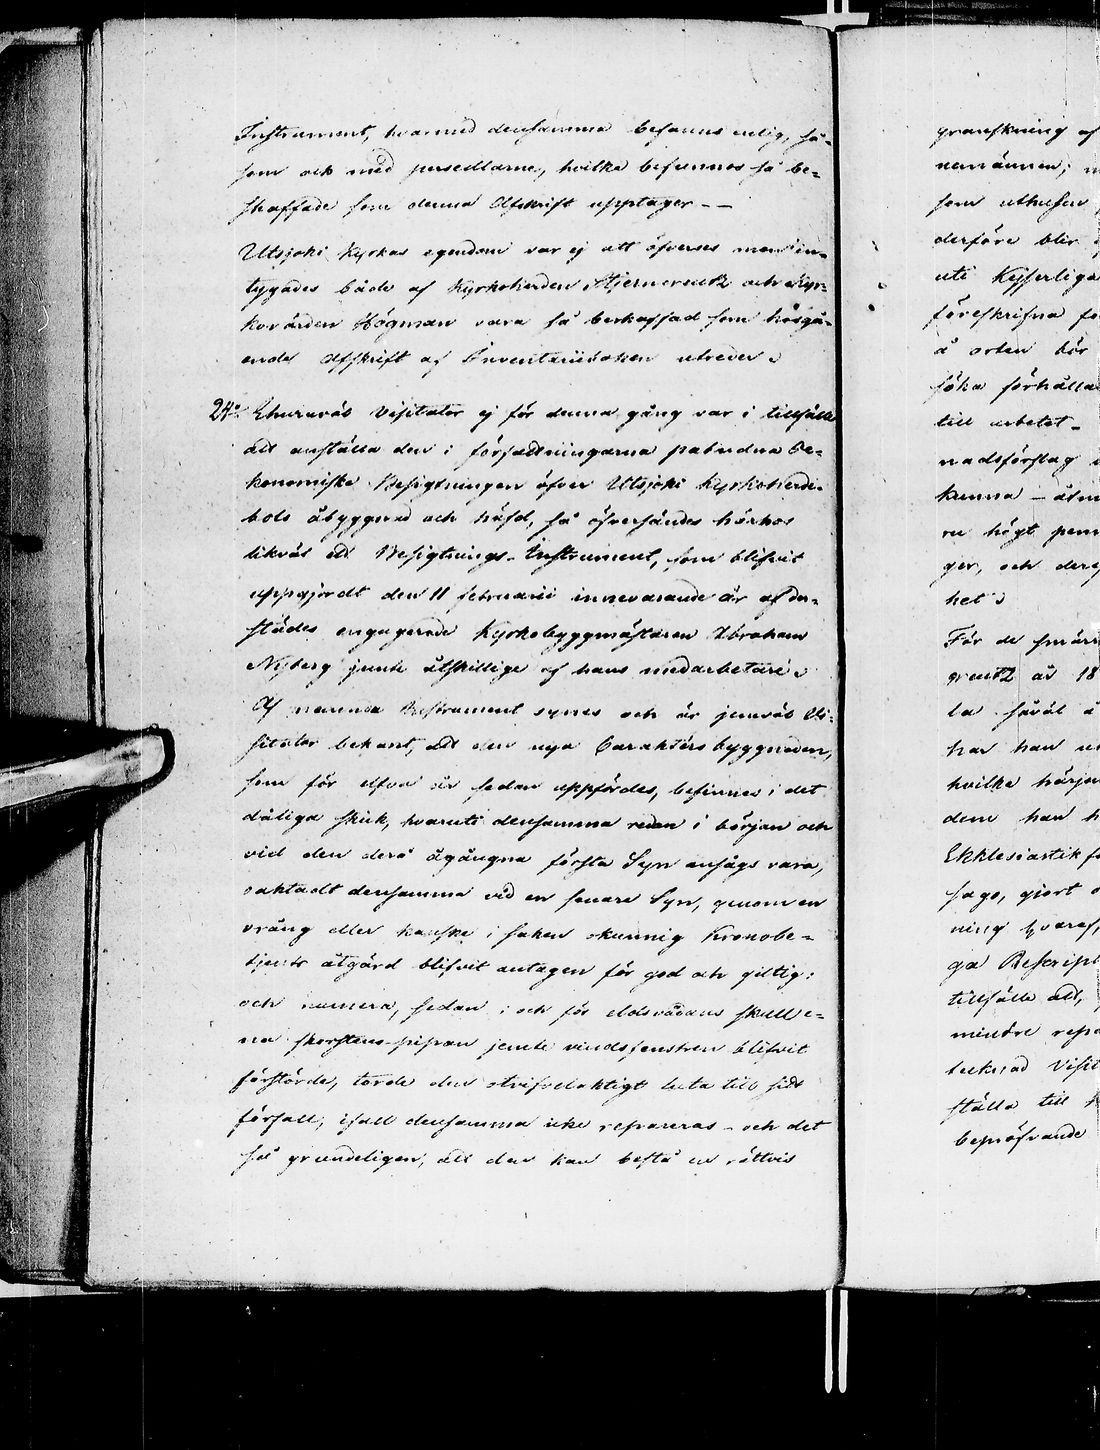 Instrument, hvarmed densamma befanns enlig, så-
som och med persedlarne, hvilka befunnos så be-
skaffade som denna Afskrift upptager --
Utsjoki Kyrkas egendom var ej att öfverses men in-
tygades både af Kyrkoherden Stjerncreutz och Kyr-
kovärden Högman vara så beskaffad som hosgå-
ende Afskrift af Inventarieboken utreder.
24o Ehuruväl Visitator ej för denna gång var i tillfälle
att anställa den i författningarna påbudna Oe-
konomiske Besigtningen öfver Utsjoki Kyrkoherde-
bols åbyggnad och häfd, så öfversändes härhos
likväl ett Besigtnings-Instrument, som blifvit
uppgjordt den 11 februarii innevarande år af där-
städes engagerade Kyrkobyggmästaren Abraham
Nyberg jemte åtskillige af hans medarbetare.
Af nämnda Instrument synes och är jemväl Vi-
sitator bekant, att den nya Caraktersbyggnaden,
som för elfva år sedan uppfördes, befinnes i det
dåliga skick, hvaruti densamma redan i början och
vid den derå ågångna första Syn ansågs vara,
oaktadt densamma vid en senare Syn, genom en
vrång eller kanske i saken okunnig Kronobe-
tjents åtgärd blifvit antagen för god och giltig;
och numera, sedan i och för eldsvådans skull e-
na skorstens-pipan jemte vindsfenstren blifvit
förstörde, torde den otvifvelaktigt luta till sitt
förfall, ifall densamma icke repareras - och det
så grundeligen, att den kan bestå en rättvis
granskning af
nemännen;
som uthusen
derföre blir
uti Kejserliga
föreskrifna
å orten bör
söka förhålla
till arbetet-
nadsförslag
kunna -
ra högt
ger, och
het.
För de smärr
creutz år 18
la såväl å
har han
hvilka härjem
dem han
Ekklesiastik
saga, gjort
ning
ga Rescript
tillfälle att,
mindre repa
tecknad Visit
ställa till
bepröfvande